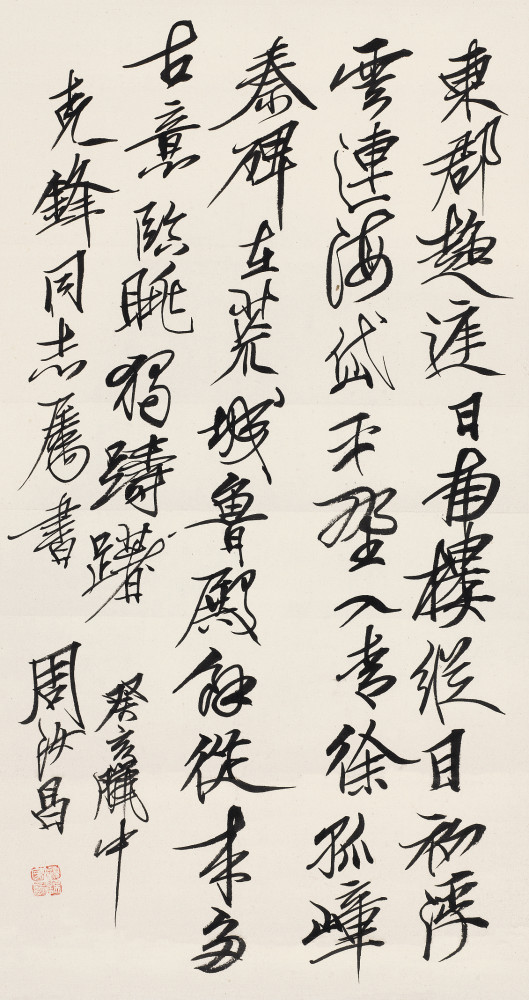 東郡趨庭日南樓縱目初浮
雲連海岱平野入青徐孤嶂
秦碑在荒城魯殿餘從來多
古意臨眺獨躊躇
癸亥臘中
克鋒同志属書
周汝昌